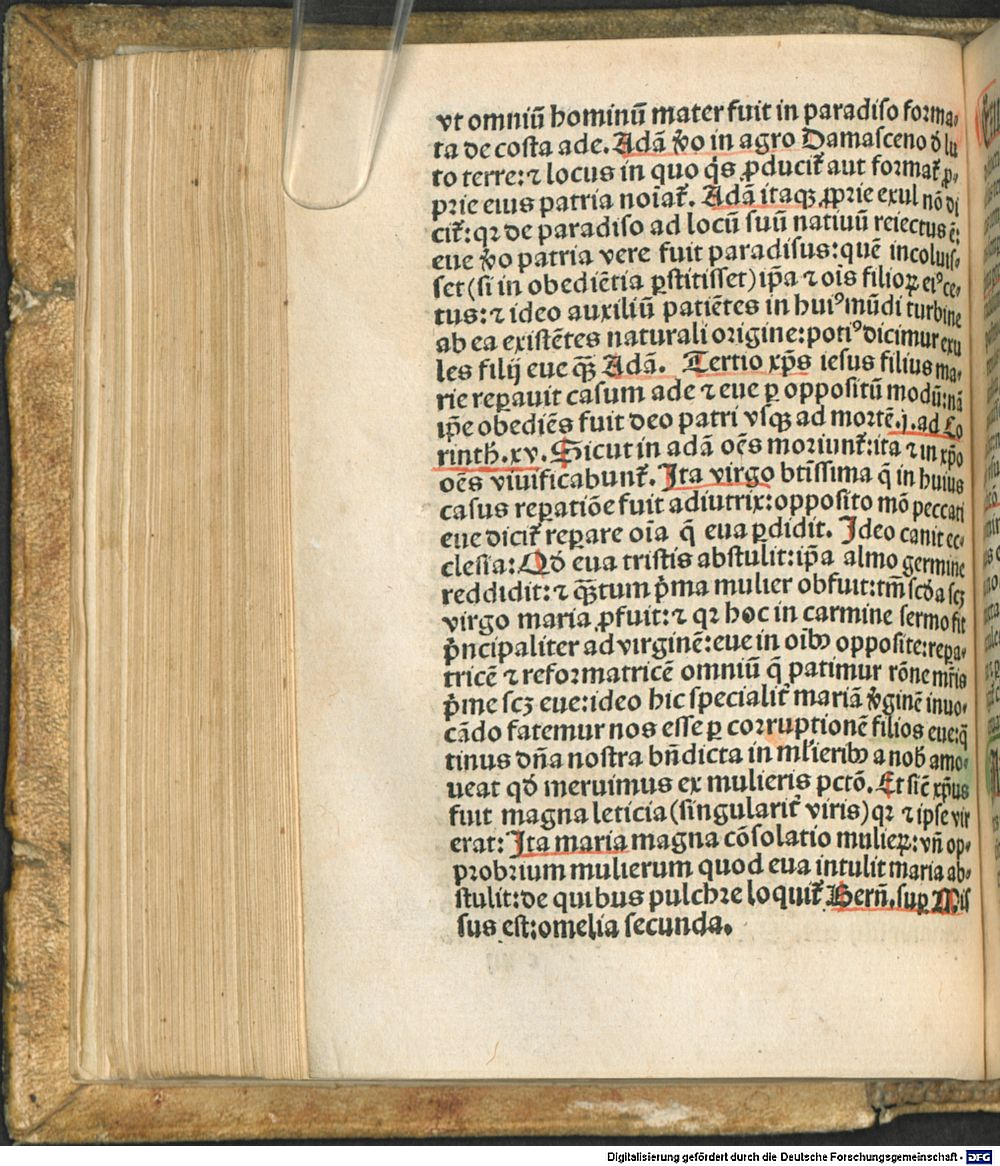 vt omniū hominū mater fuit in paradiſo forma⸗
ta de coſta ade. Adā ꝟo in agro Damaſceno ð lu
to terre: ⁊ locus in quo q̇s ꝓducit᷑ aut format᷑ ꝓ⸗
prie eius patria noīat᷑. Adā itaqꝫ ꝓprie exul nō di
cit᷑: qꝛ de paradiſo ad locū ſuū natiuū reiectus ē:
eue ꝟo patria vere fuit paradiſus: quē incoluiſ⸗
ſet (ſi in obediētia ꝑſtitiſſet) ip̄a ⁊ oīs filioꝝ eiꝰ ce⸗
tus: ⁊ ideo auxiliū patiētes in huiꝰ mūdi turbine
ab ea exiſtētes naturali origine: potiꝰ dicimur exu
les filij eue qꝫ̄ Adā. Tertio xp̄s ieſus filius ma⸗
rie reꝑauit caſum ade ⁊ eue ꝑ oppoſitū modū: nā
ip̄e obediēs fuit deo patri vſqꝫ ad mortē. j. ad Co
rinth. xv. Sicut in adā oēs moriunt᷑: ita ⁊ in xp̄o
oēs viuificabunt᷑. Ita virgo btīſſima q̄ in huius
caſus reꝑatiōe fuit adiutrix: oppoſito mō peccati
eue dicit᷑ reꝑare oīa q̄ eua ꝑdidit. Ideo canit ec⸗
cleſia: Qð eua triſtis abſtulit: ip̄a almo germine
reddidit: ⁊ qꝫ̄tum pͥma mulier obfuit: tm̄ ſcða ſcꝫ
virgo maria ꝓfuit: ⁊ qꝛ hoc in carmine ſermo fit
pͥncipaliter ad virginē: eue in oībꝰ oppoſite: reꝑa⸗
tricē ⁊ reformatricē omniū q̄ patimur rōne mr̄is
pͥme ſcꝫ eue: ideo hic ſpecialit᷑ mariā ꝟginē inuo⸗
cādo fatemur nos eſſe ꝑ corruptionē filios eue: q̄
tinus dn̄a noſtra bn̄dicta in ml̄ieribꝰ a nob̄ amo⸗
ueat qð meruimus ex mulieris pctō. Et ſic̄ xp̄us
fuit magna leticia (ſingularit᷑ viris) qꝛ ⁊ ipſe vir
erat: Ita maria magna cōſolatio mulieꝝ: vn̄ op⸗
probrium mulierum quod eua intulit maria ab⸗
ſtulit: de quibus pulchre loquit᷑ Bern̄. ſuꝑ Miſ
ſus eſt: omelia ſecunda.
Digitalisierung gefördert durch die Deutsche Forschungsgemeinschaft - DFG